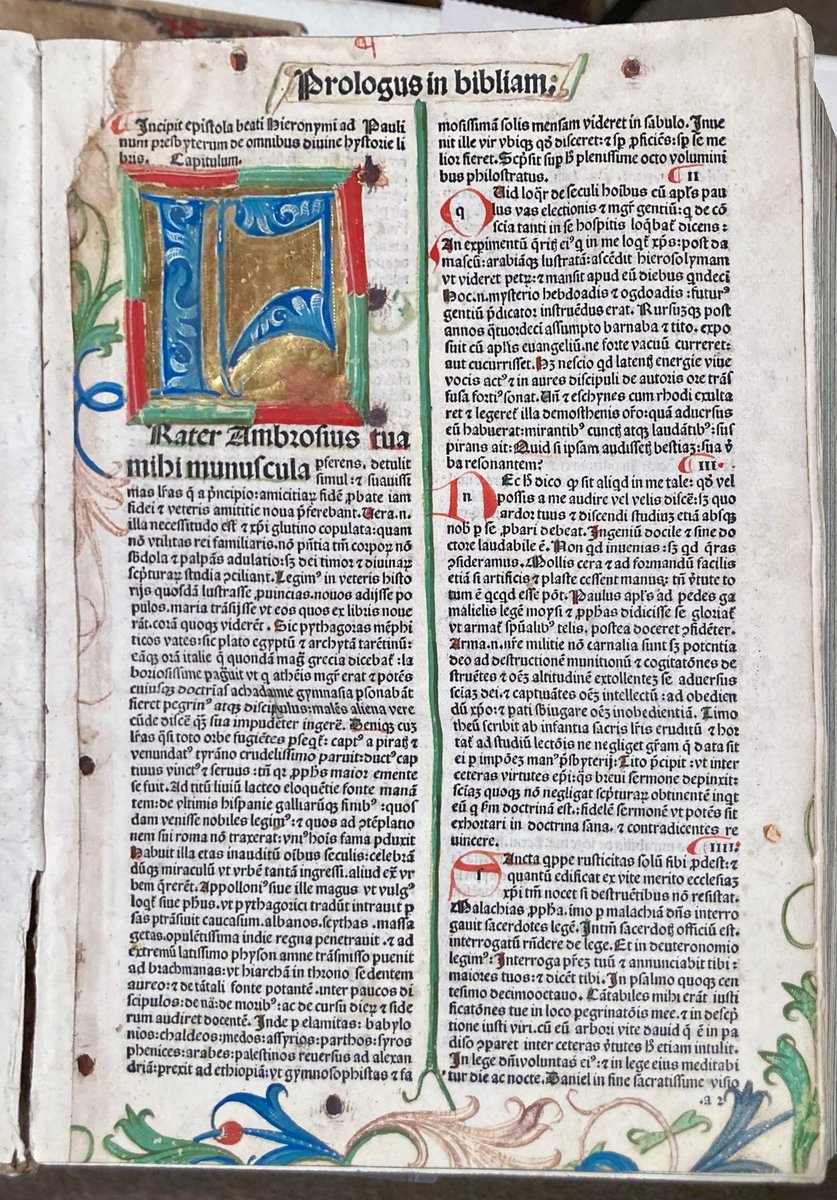 Prologus in bibliam:
Incipit epistola beati Hieronymi ad Pauli
num presbyterum de omnibus divine hystorie li
bris. Capitulum.
Rater Ambrosius tua
mihi munuscula
pferens, detulit
simul: ⁊ suavissi
mas lr̃as q̃ a pͥncipio: amiciciaꝝ fidẽ ꝓbate iam
fidei ⁊ veteris amititie noua p̃ferebant. Uera.n.
illa necessitudo est ⁊ xp̃i glutino copulata: quam
nõ vtilitas rei familiaris. nõ pñtia tm̃ corpoꝝ nõ
sb̃dola ⁊ palpãs adulatio: sꝫ dei timor ⁊ diuinaꝝ
scͥpturaꝝ studia ꝯciliant. Legimꝰ in veteris histo
rijs quosdã lustrasse ꝓuincias. nouos adijsse po
pulos. maria trãsisse vt eos quos ex libris noue
rãt. corã quoqꝫ viderẽt. Sic pythagoras mẽphi
ticos vates: sic plato egyptũ ⁊ archytã tarẽtinũ:
eãqꝫ orã italie q̃ quondã mag̃ grecia dicebat̃: la
boriosissime pagͣuit vt q̃ athẽis mgr̃ erat ⁊ potẽs
cuiusqꝫ doctrĩas achadamie gymnasia psonabãt
fieret pegrinꝰ atqꝫ discipulus: malẽs aliena vere
cũde discẽ q̃ꝫ sua impudẽter ingerẽ. Deniqꝫ cuꝫ
lr̃as q̃si toto orbe fugiẽtes pseq̃t̃: captꝰ a piratꝭ ⁊
venundatꝰ tyrãno crudelissimo paruit: ductꝰ cap
tiuus vinctꝰ ⁊ seruus: tñ qꝛ ꝓphs maior emente
se fuit. Ad titũ liuiũ lacteo eloquẽtie fonte manã
tem: de vltimis hispanie galliarũqꝫ finibꝰ: quos
dam venisse nobiles legimꝰ: ⁊ quos ad ꝯtẽplatio
nem sui roma nõ traxerat: vniꝰ hois fama pduxit
Habuit illa etas inauditũ oĩbus seculis: celebrã
dũqꝫ miraculũ vt vrbẽ tantã ingressi. aliud ex̃ vr
bem q̃rerẽt. Appolloniꝰ siue ille magus vt vulgꝰ
loqt̃ siue ph̃us. vt pythagorici tradũt intrauit p
sas ptrãsiuit caucasum. albanos. scythas. massa
getas. opulẽtissima indie regna penetrauit. ⁊ ad
extremũ latissimo physon amne trãsmisso puenit
ad brachmanas: vt hiarchã in throno sedentem
aureo: ⁊ de tãtali fonte potantẽ. inter paucos di
scipulos: de nã: de moribꝰ: ac de cursu dieꝝ ⁊ side
rum audiret docentẽ. Inde p elamitas: babylo
nios: chaldeos: medos: assyrios: parthos: syros
phenices: arabes: palestinos reuersus ad alexan
driã: prexit ad ethiopiã: vt gymnosophistas ⁊ fa
mosissimã solis mensam videret in sabulo. Inue
nit ille vir vbiqꝫ qõ disceret: ⁊ sp ꝓficiẽs: sp se me
lior fieret. Scͥpsit sup h̃ plenissime octo volumini
bus philostratus.
II
q
Uid loqr̃ de seculi hoĩbus cũ apl̃s pau
lus vas electionis ⁊ mgr̃ gentiũ: q̃ de cõ
scia tanti in se hospitis loq̃bat̃ dicens:
An expimentũ q̃ritꝭ eiꝰ q̃ in me loqt̃ xp̃s: post da
mascũ: arabiãqꝫ lustratã: ascẽdit hierosolymam
vt videret petrꝝ: ⁊ mansit apud eũ diebus qͥndeci
Hoc.n.mysterio hebdoadis ⁊ ogdoadis: futurꝰ
gentiũ p̃dicator instruẽdus erat. Rursũqꝫ post
annos q̃tuordeci assumpto barnaba ⁊ tito. expo
suit cũ apl̃is euangeliũ. ne forte vacuũ curreret:
aut cucurrisset. Hꝫ nescio qd̃ latentꝭ energie viue
vocis actꝰ ⁊ in aures discipuli de autoris ore trãs
fusa fortiꝰ sonat. Uñ ⁊ eschynes cum rhodi exulta
ret ⁊ legeret̃ illa demosthenis or̃o: quã aduersus
eũ habuerat: mirantibꝰ cunctꝭ atqꝫ laudãtibꝰ: sus
pirans ait: Quid si ipsam audissetꝭ bestiaꝫ: sua v̾
ba resonantem?
III.
n
Ec h̃ dico qꝫ sit aliqd̃ in me tale: qõ vel
possis a me audire vel velis discẽ: sꝫ quo
ardoꝛ tuus ⁊ discendi studiuꝫ etiã absqꝫ
nob̃ p se ꝓbari debeat. Ingeniũ docile ⁊ sine do
ctore laudabile ẽ. Non qd̃ inuenias: sꝫ qd̃ q̃ras
ꝯsideramus. Mollis cera ⁊ ad formandũ facilis
etiã si artificis ⁊ plaste cessent manuꝫ: tñ v̾tute to
tum ẽ qͥcqd̃ esse põt. Paulus apl̃s ad pedes ga
malielis legẽ moysi ⁊ ꝓphas didicisse se gloriat̃
vt armatꝰ sp̃ualibꝰ telis. postea doceret ꝯfidẽter.
Arma.n.nr̃e militie nõ carnalia sunt sꝫ potentia
deo ad destructionẽ munitionũ ⁊ cogitatõnes de
struẽtes ⁊ oẽs altitudinẽ extollentẽ se aduersus
sciaꝫ dei. ⁊ captiuãtes oẽꝫ intellectũ: ad obedien
dũ xp̃o: ⁊ pati sb̃iugare oẽꝫ inobedientiã. Timo
theũ scribit ab infantia sacris lr̃is eruditũ ⁊ hor
tat̃ ad studiũ lectõis ne negliget gr̃am q̃ data sit
ei p impoẽꝫ manꝰ p̃sbyterij: Tito p̃cipit: vt inter
ceteras virtutes ep̃i: q̃s breui sermone depinxit:
sciaꝫ quoqꝫ nõ negligat scͥpturaꝝ obtinentẽ inqt
eũ q̃ s̃m doctrinã est: fidelẽ sermonẽ vt potẽs sit
exhortari in doctrina sana. ⁊ contradicentes re
uincere.
IIII.
s
Ancta q̃ppe rusticitas solũ sibi ꝓdest: ⁊
quantũ edificat ex vite merito ecclesiaꝫ
xp̃i tm̃ nocet si destruẽtibus nõ resistat.
Malachias ꝓpha. imo p malachiã dñs interro
gauit sacerdotes legẽ. Intm̃ sacerdotꝭ officiũ est.
interrogatũ rñdere de lege. Et in deuteronomio
legimꝰ: Interroga prẽꝫ tuũ ⁊ annunciabit tibi:
maiores tuos: ⁊ dicẽt tibi. In psalmo quoqꝫ cen
tesimo decimooctauo. Cãtabiles mihi erãt iusti
ficatõnes tue in loco pegrinatõis mee. ⁊ in descͥp
tione iusti viri. cũ eũ arbori vite dauid q̃ ẽ in pa
diso ꝯparet inter ceteras v̾tutes h̃ etiam intulit.
In lege dñi voluntas eiꝰ: ⁊ in lege eius meditabi
tur die ac nocte. Daniel in fine sacratissime visio
.a 2